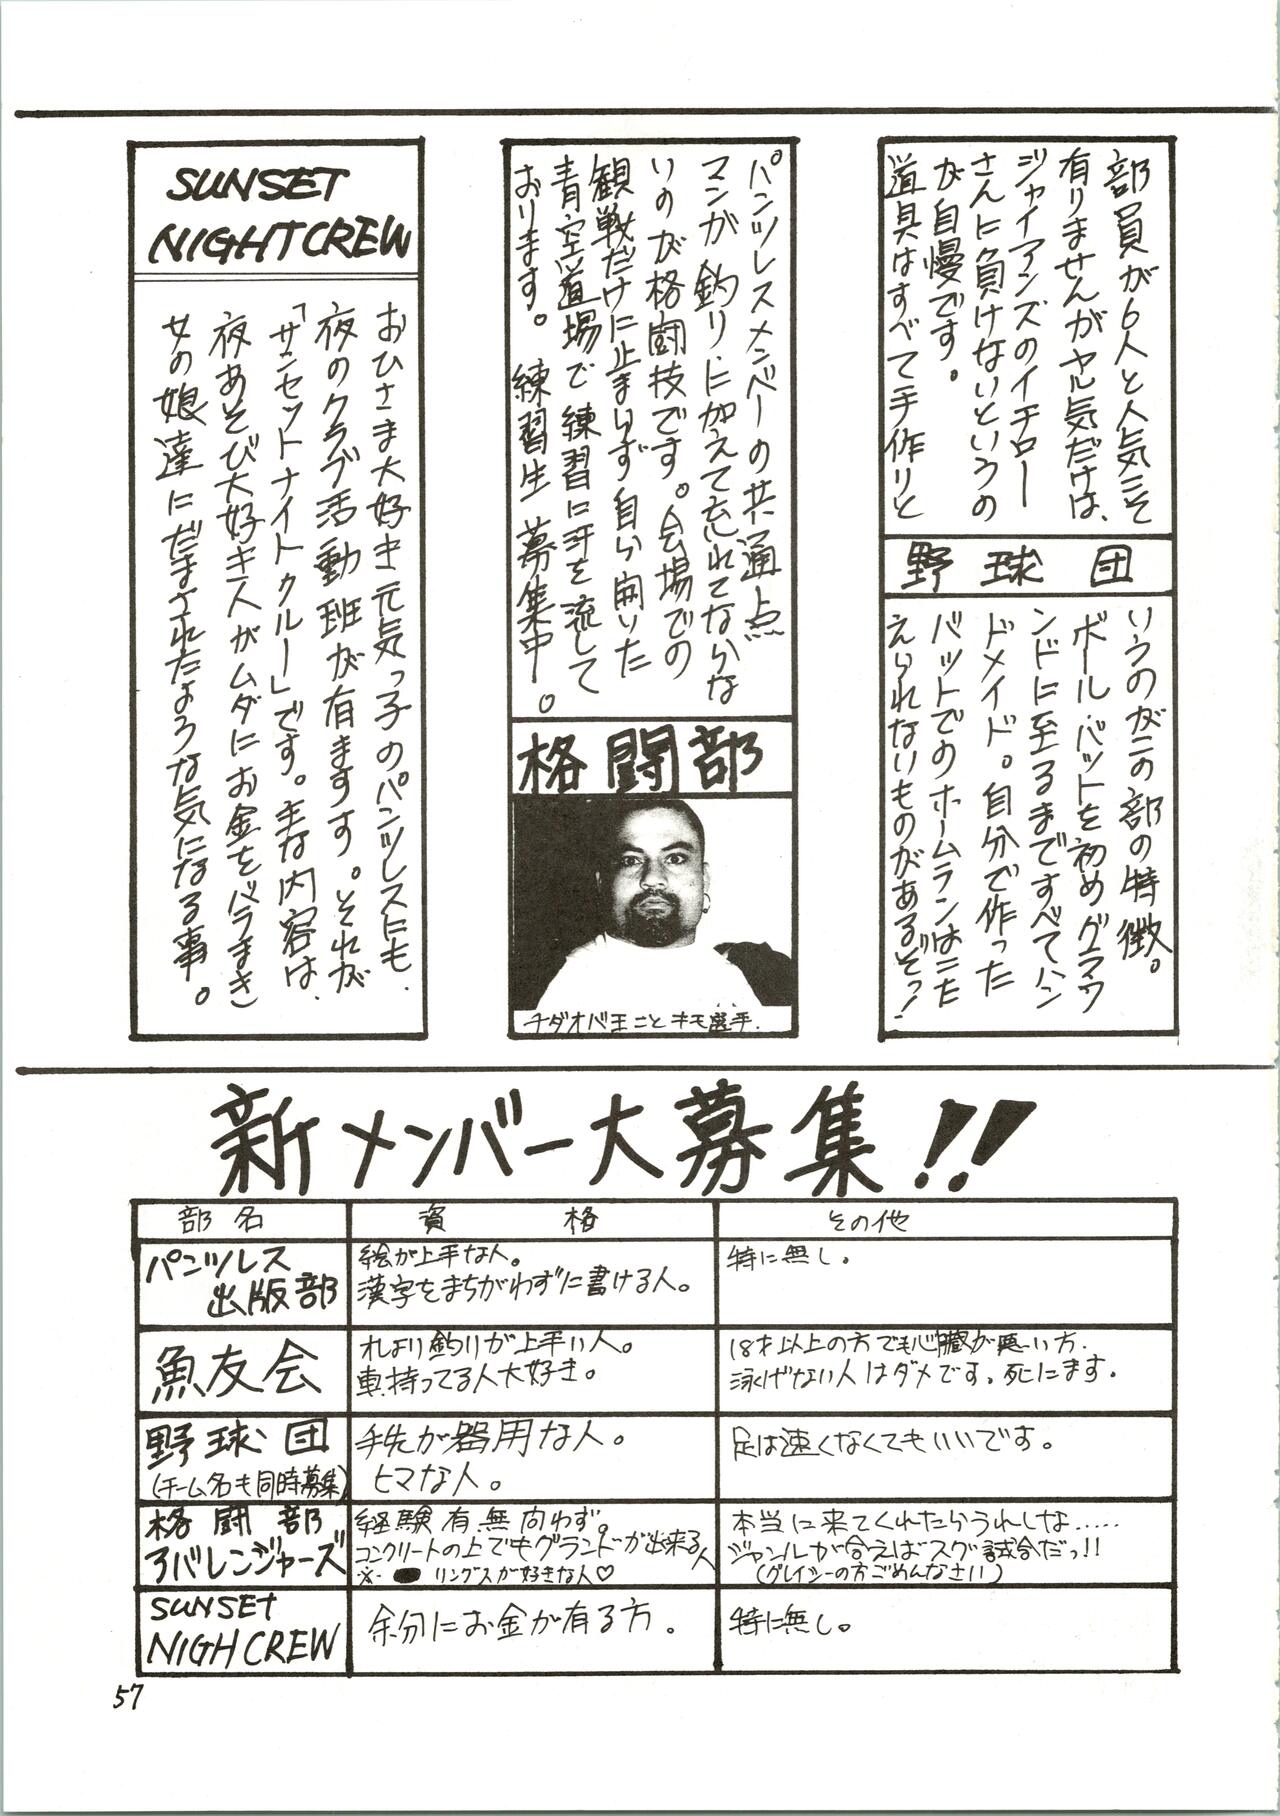 部員が6人と人気こそ
有りませんがヤル気だけは、
ジャイアンズのイチロー
さんに負けないというの
が自慢です。
道具はすべて手作りと
野球団
いうのがこの部の特徴。
ボールバットを初めグラウ
ンドに至るまですべてハン
ドメイド。自分で作った
バットでのホームランはこた
えられないものがあるぞっ!
パンツレスメンバーの共通点
マンガ釣りに加えて忘れてならな
いのが格闘技です。会場での
観戦だけに止まらず自ら開いた
青空道場で練習に汗を流して
おります。練習生募集中。
格闘部
チダオバ王ことキモ選手.
SUNSET
NIGHTCREW
おひさま大好き元気っ子のパンツレスにも、
夜のクラブ活動班が有ますす。それが
「サンセットナイトクルー」です。主な内容は、
夜あそび大好キ人がムダにお金をバラまき
女の娘達にだまされたような気になる事。
新メンバー大募集!!
部名 資格 その他
パンツレス
出版部
絵が上手な人。
漢字をまちがわずに書ける人。
特に無し。
魚友会
れより釣りが上手い人。
車持ってる人大好き。
18才以上の方でも心臓が悪い方.
泳げない人はダメです。死にます。
野球団
(チーム名も同時募集)
手先が器用な人。
ヒマな人。
足は速くなくてもいいです。
格闘部
アバレンジャーズ
経験有無向わず。
コンクリートの上でもグランドが出来る人
※ リングスが好きな人♡
本当に来てくれたらうれしな.....
ジャンルが合えばスグ試合だっ!!
(グレイシーの方ごめんなさい)
SUNSET
NIGHCREW
余分にお金が有る方。
特に無し。
57